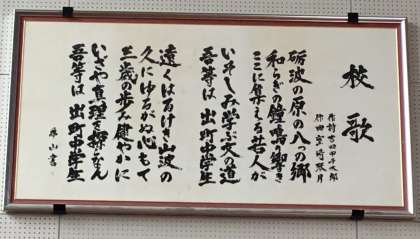 校歌
砺波の原の八つの郷
和らぎの鐘鳴り響き
ここに集える若人が
いそしみ学ぶ文の道
吾等は 出町中学生
遠くはるけき山波の
久にゆるがぬ心もて
三歳の歩み健やかに
いざや真理を探らなん
吾等は 出町中学生